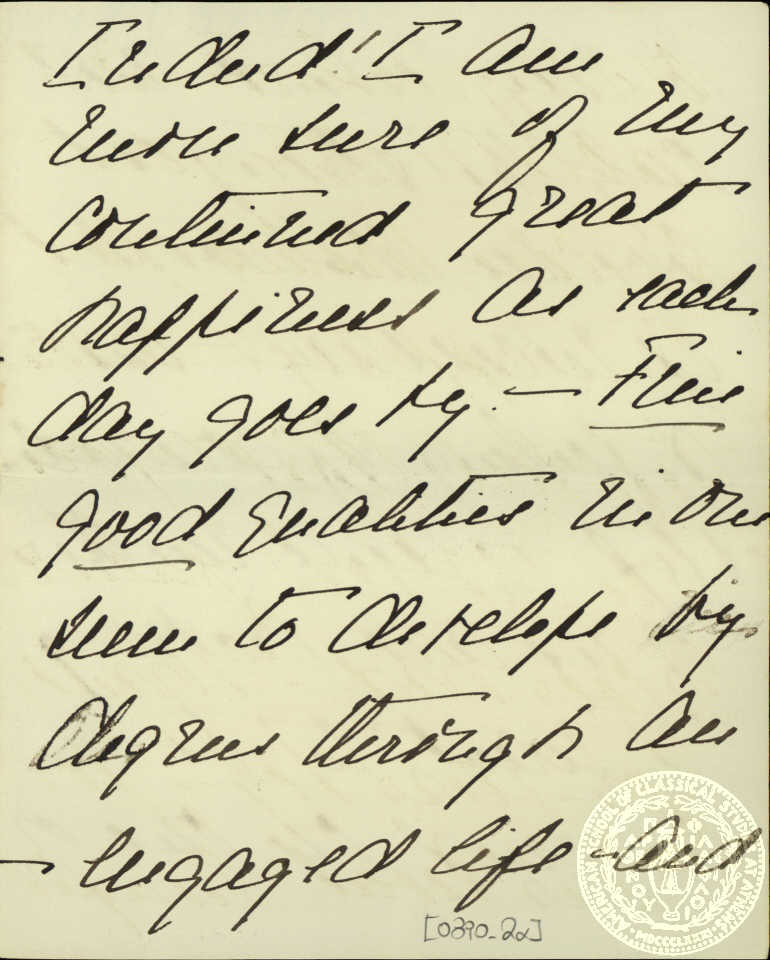 Indeed! I am
more sure of my
continued great
happiness as each
day goes by. — Fine
good qualities in one
seem to develope by
degrees through an
— engaged life - and
[0390-2α]
AMERICAN SCHOOL OF CLASSICAL STUDIES AT ATHENS
MDCCCLXXXI